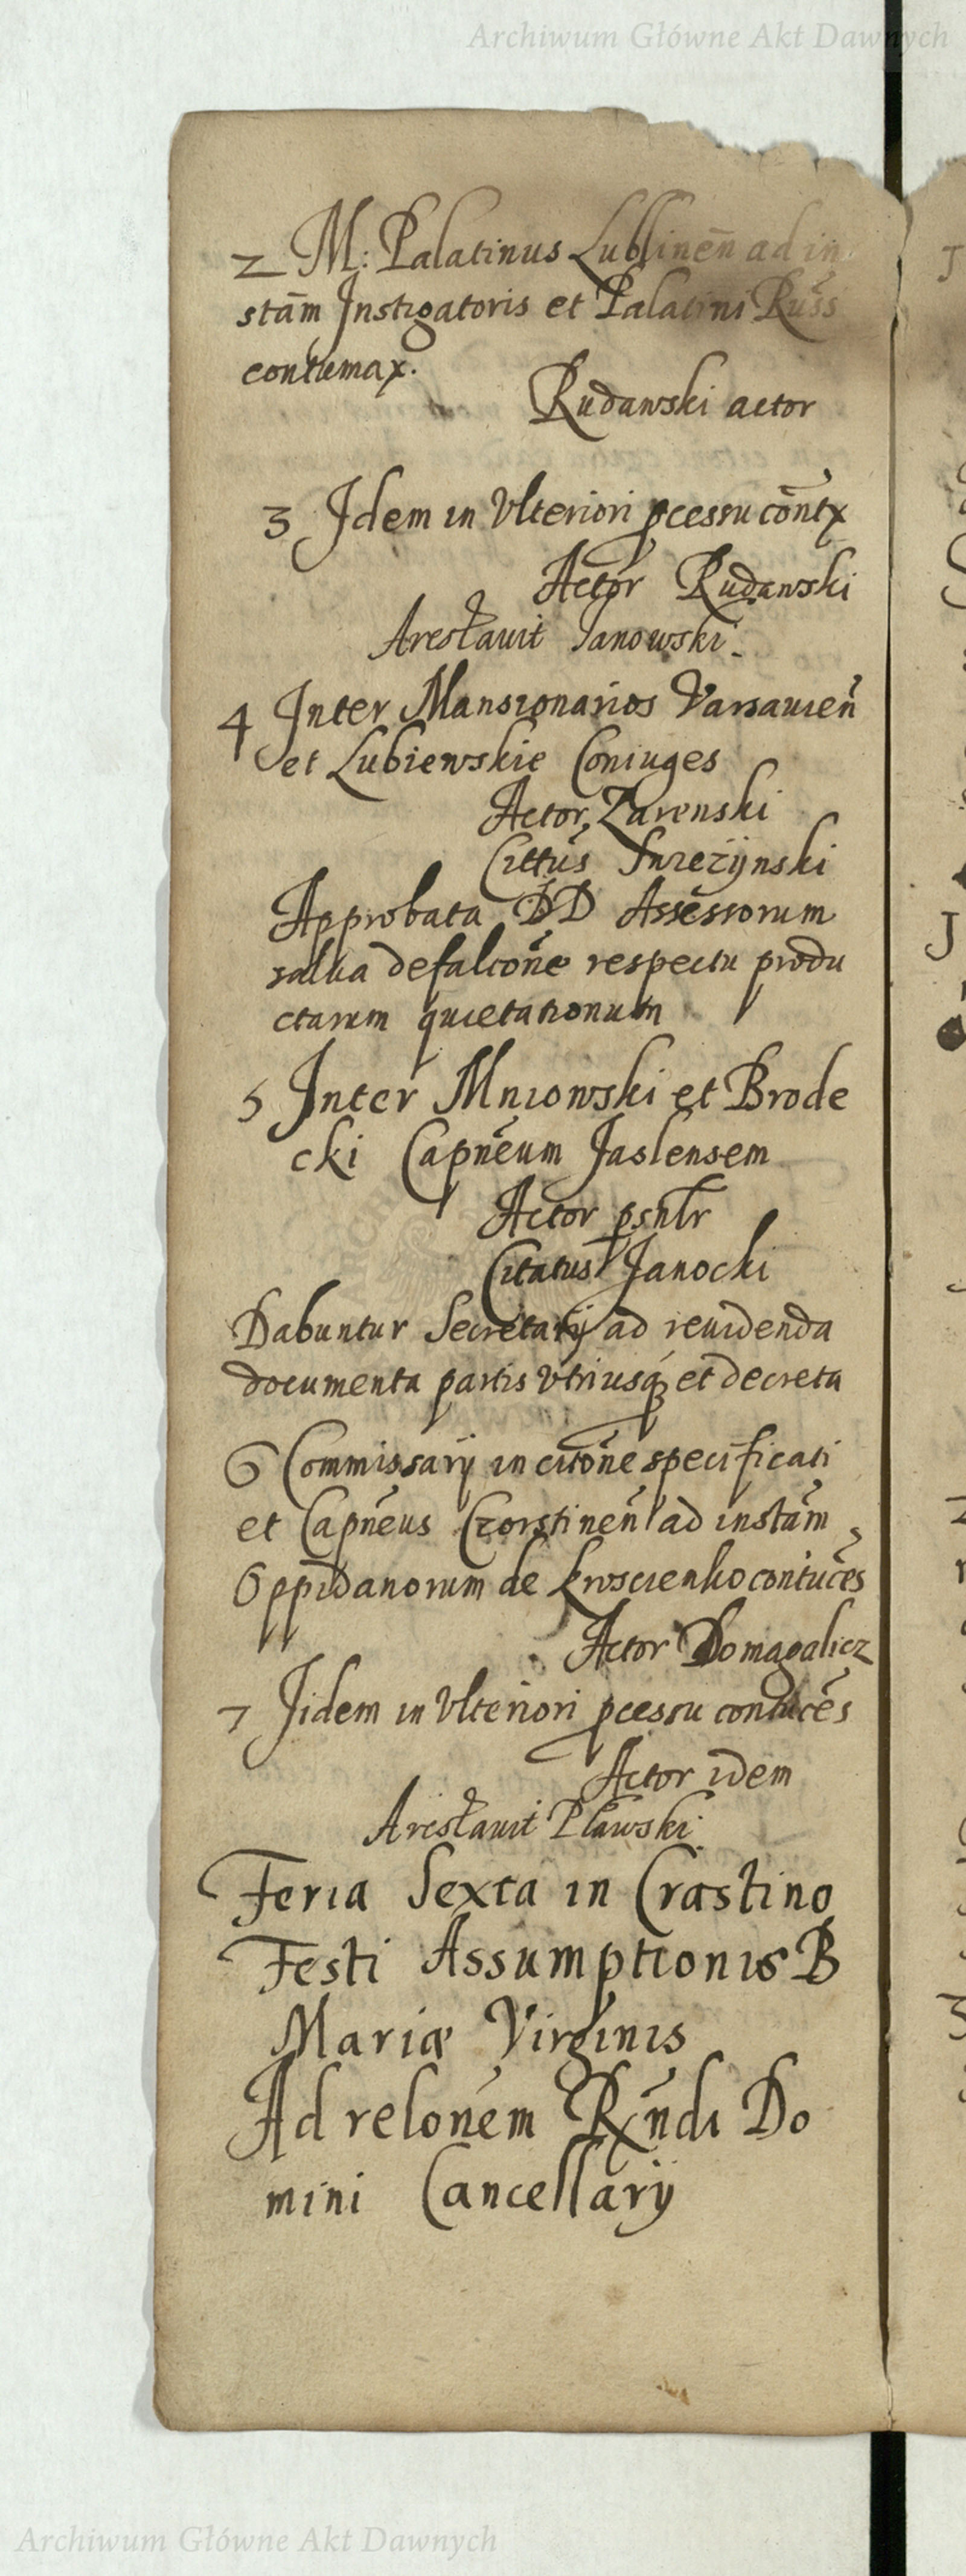 Archiwum Główne Akt Dawnych
2 M: Palatinus Lublineñ ad in
stām Instigatoris et Palatini Russ
contumax.
Rudawski actor
3 Idem in Vlteriori pcessu contx
Actor Rudawski
Arestauit Janowski.
4 Inter Mansionarios Varsauień
et Lubiewskie Coniuges
Actor Zarenski
Cittus
Approbata DD Assessorum
salua defalcoñe respectu produ
ctarum quietationum
5 Inter Mniowski et Brode
cki Capneum Jaslensem
Actor psnlr
Citatus Janocki
Dabuntur Secretarij ad reuidenda
documenta partis vtriusq et decreta
6 Commissarij in citoñe specificati
et Capneus Czorstineñ ad instām
Oppidanorum de Kroscienko contuces
Actor Domagalicz
7 Iidem in Vlteriori pcessu contuces
Actor idem
Arestauit Plawski
Feria Sexta in Crastino
Festi Assumptionis B
Mariæ Virginis
Ad relonem Rndi Do
mini Cancellarij
Archiwum Główne Akt Dawnych